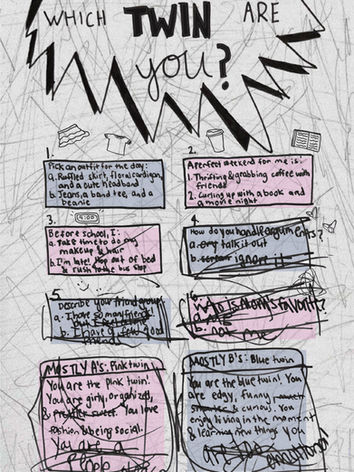 WHICH TWIN ARE
you?
1.
Pick an outfit for the day:
a. Ruffled skirt, floral cardigan,
and a cute headband
b. Jeans, a band tee, and a
beanie
2.
A perfect weekend for me is:
1. Thrifting & grabbing coffee with
friends
2. Curling up with a book and
a movie night
3.
Before school, I:
a. Take time to do my
makeup & hair
b. I'm late! Hop out of bed
& rush to the bus stop
4.
How do you handle arguments?
a. cry talk it out
b. scream ignore it
5.
Describe your friend group:
a. I have so many friends!
b. I have a few good
friends
6.
Who is mom's favorite?
b. not me
MOSTLY A's: Pink twin
You are the pink twin!
You are girly, organized,
& sweet. You love
fashion & being social.
You are a
MOSTLY B's: Blue twin
You are the blue twin! You
are edgy, funny,
& curious. You
enjoy living in the moment
& learning new things You
are the